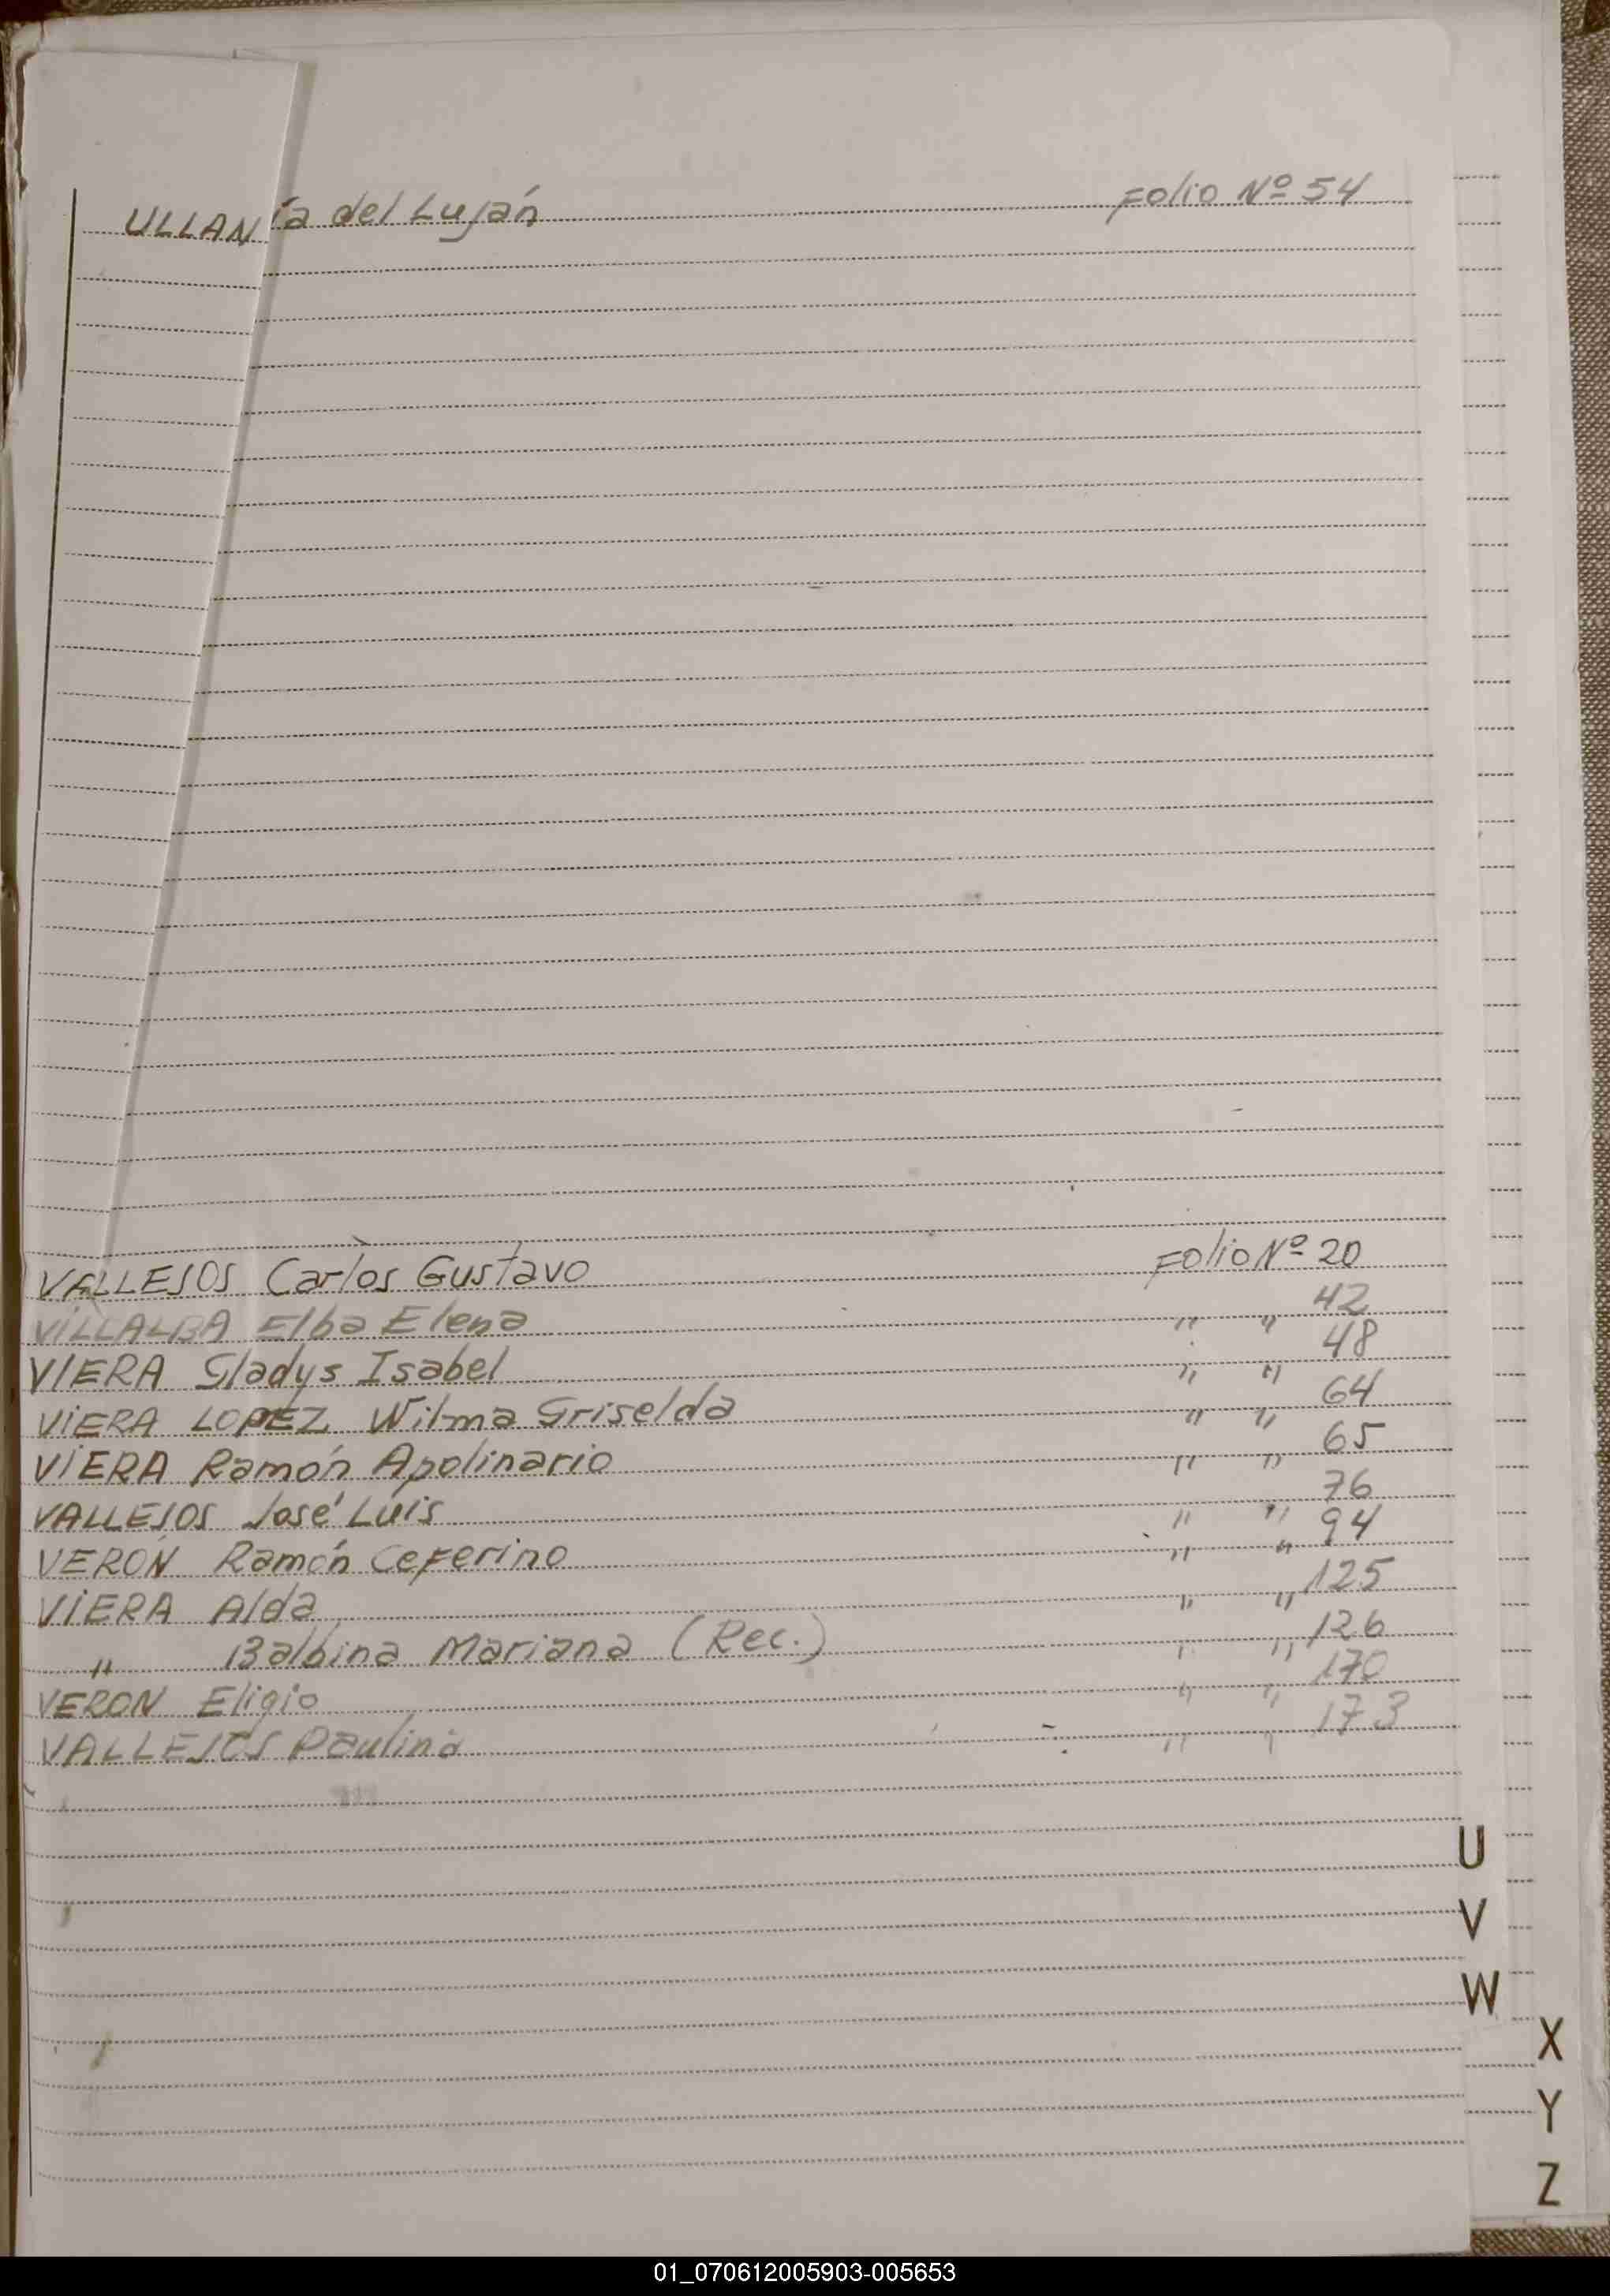 ULLAN ía del Luján Folio Nº 54
VALLEJOS Carlos Gustavo Folio Nº 20
VILLALBA Elba Elena " " 42
VIERA Gladys Isabel " " 48
VIERA LOPEZ Wilma Griselda " " 64
VIERA Ramón Apolinario " " 65
VALLEJOS José Luis " " 76
VERÓN Ramón Ceferino " " 94
VIERA Alda " " 125
" Balbina Mariana (Rec.) " " 126
VERON Eligio " " 170
VALLEJOS Paulina " " 173
U
V
W
X
Y
Z
01_070612005903-005653